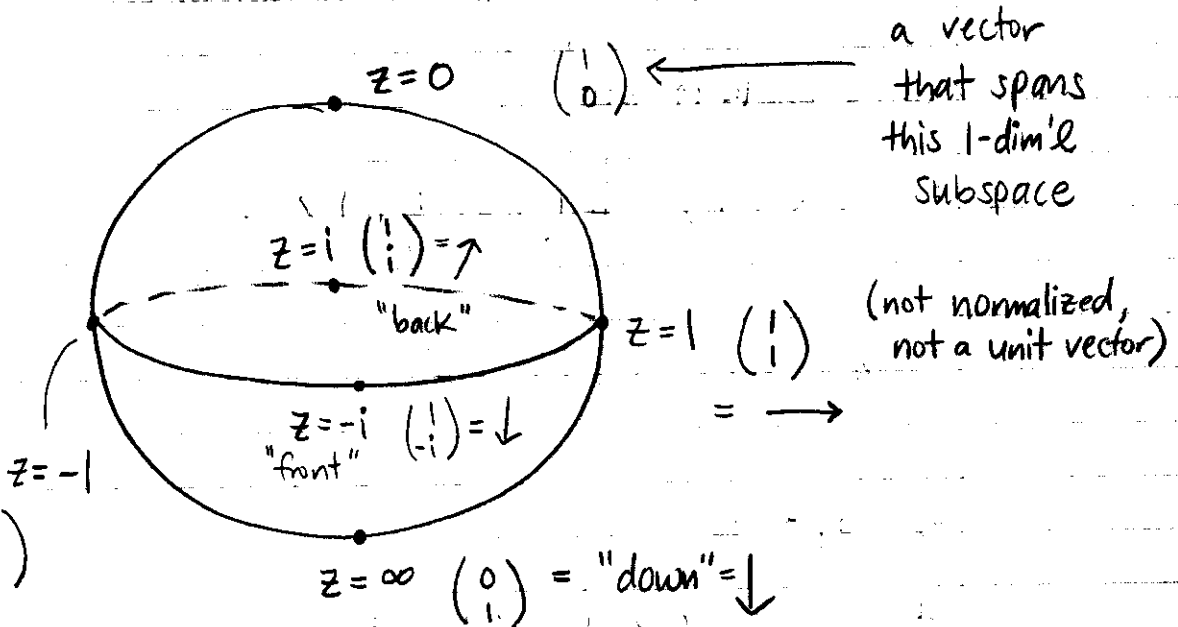 a vector
that spans
this 1-dim'l
subspace
z=0 (1 0) ←
z=i (1 i) = ↗
"back"
z=1 (1 1)
= →
(not normalized,
not a unit vector)
z=-i (1 -i) = ↓
"front"
z=-1
)
z=∞ (0 1) = "down" = ↓